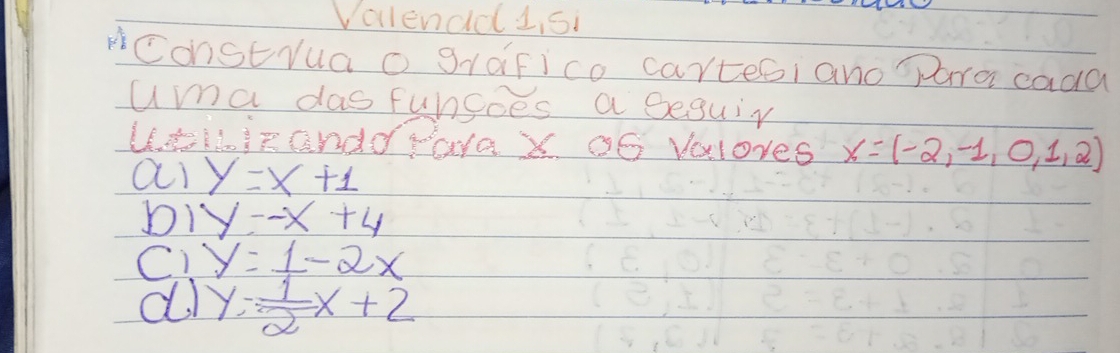 Valendo 1,51
Construa o gráfico cartesiano Para cada
uma das funções a seguir
utilizando Para x os valores x=(-2,-1,0,1,2)
a) y=x+1
b) y=-x+4
c) y=1-2x
d) y=1/2x+2